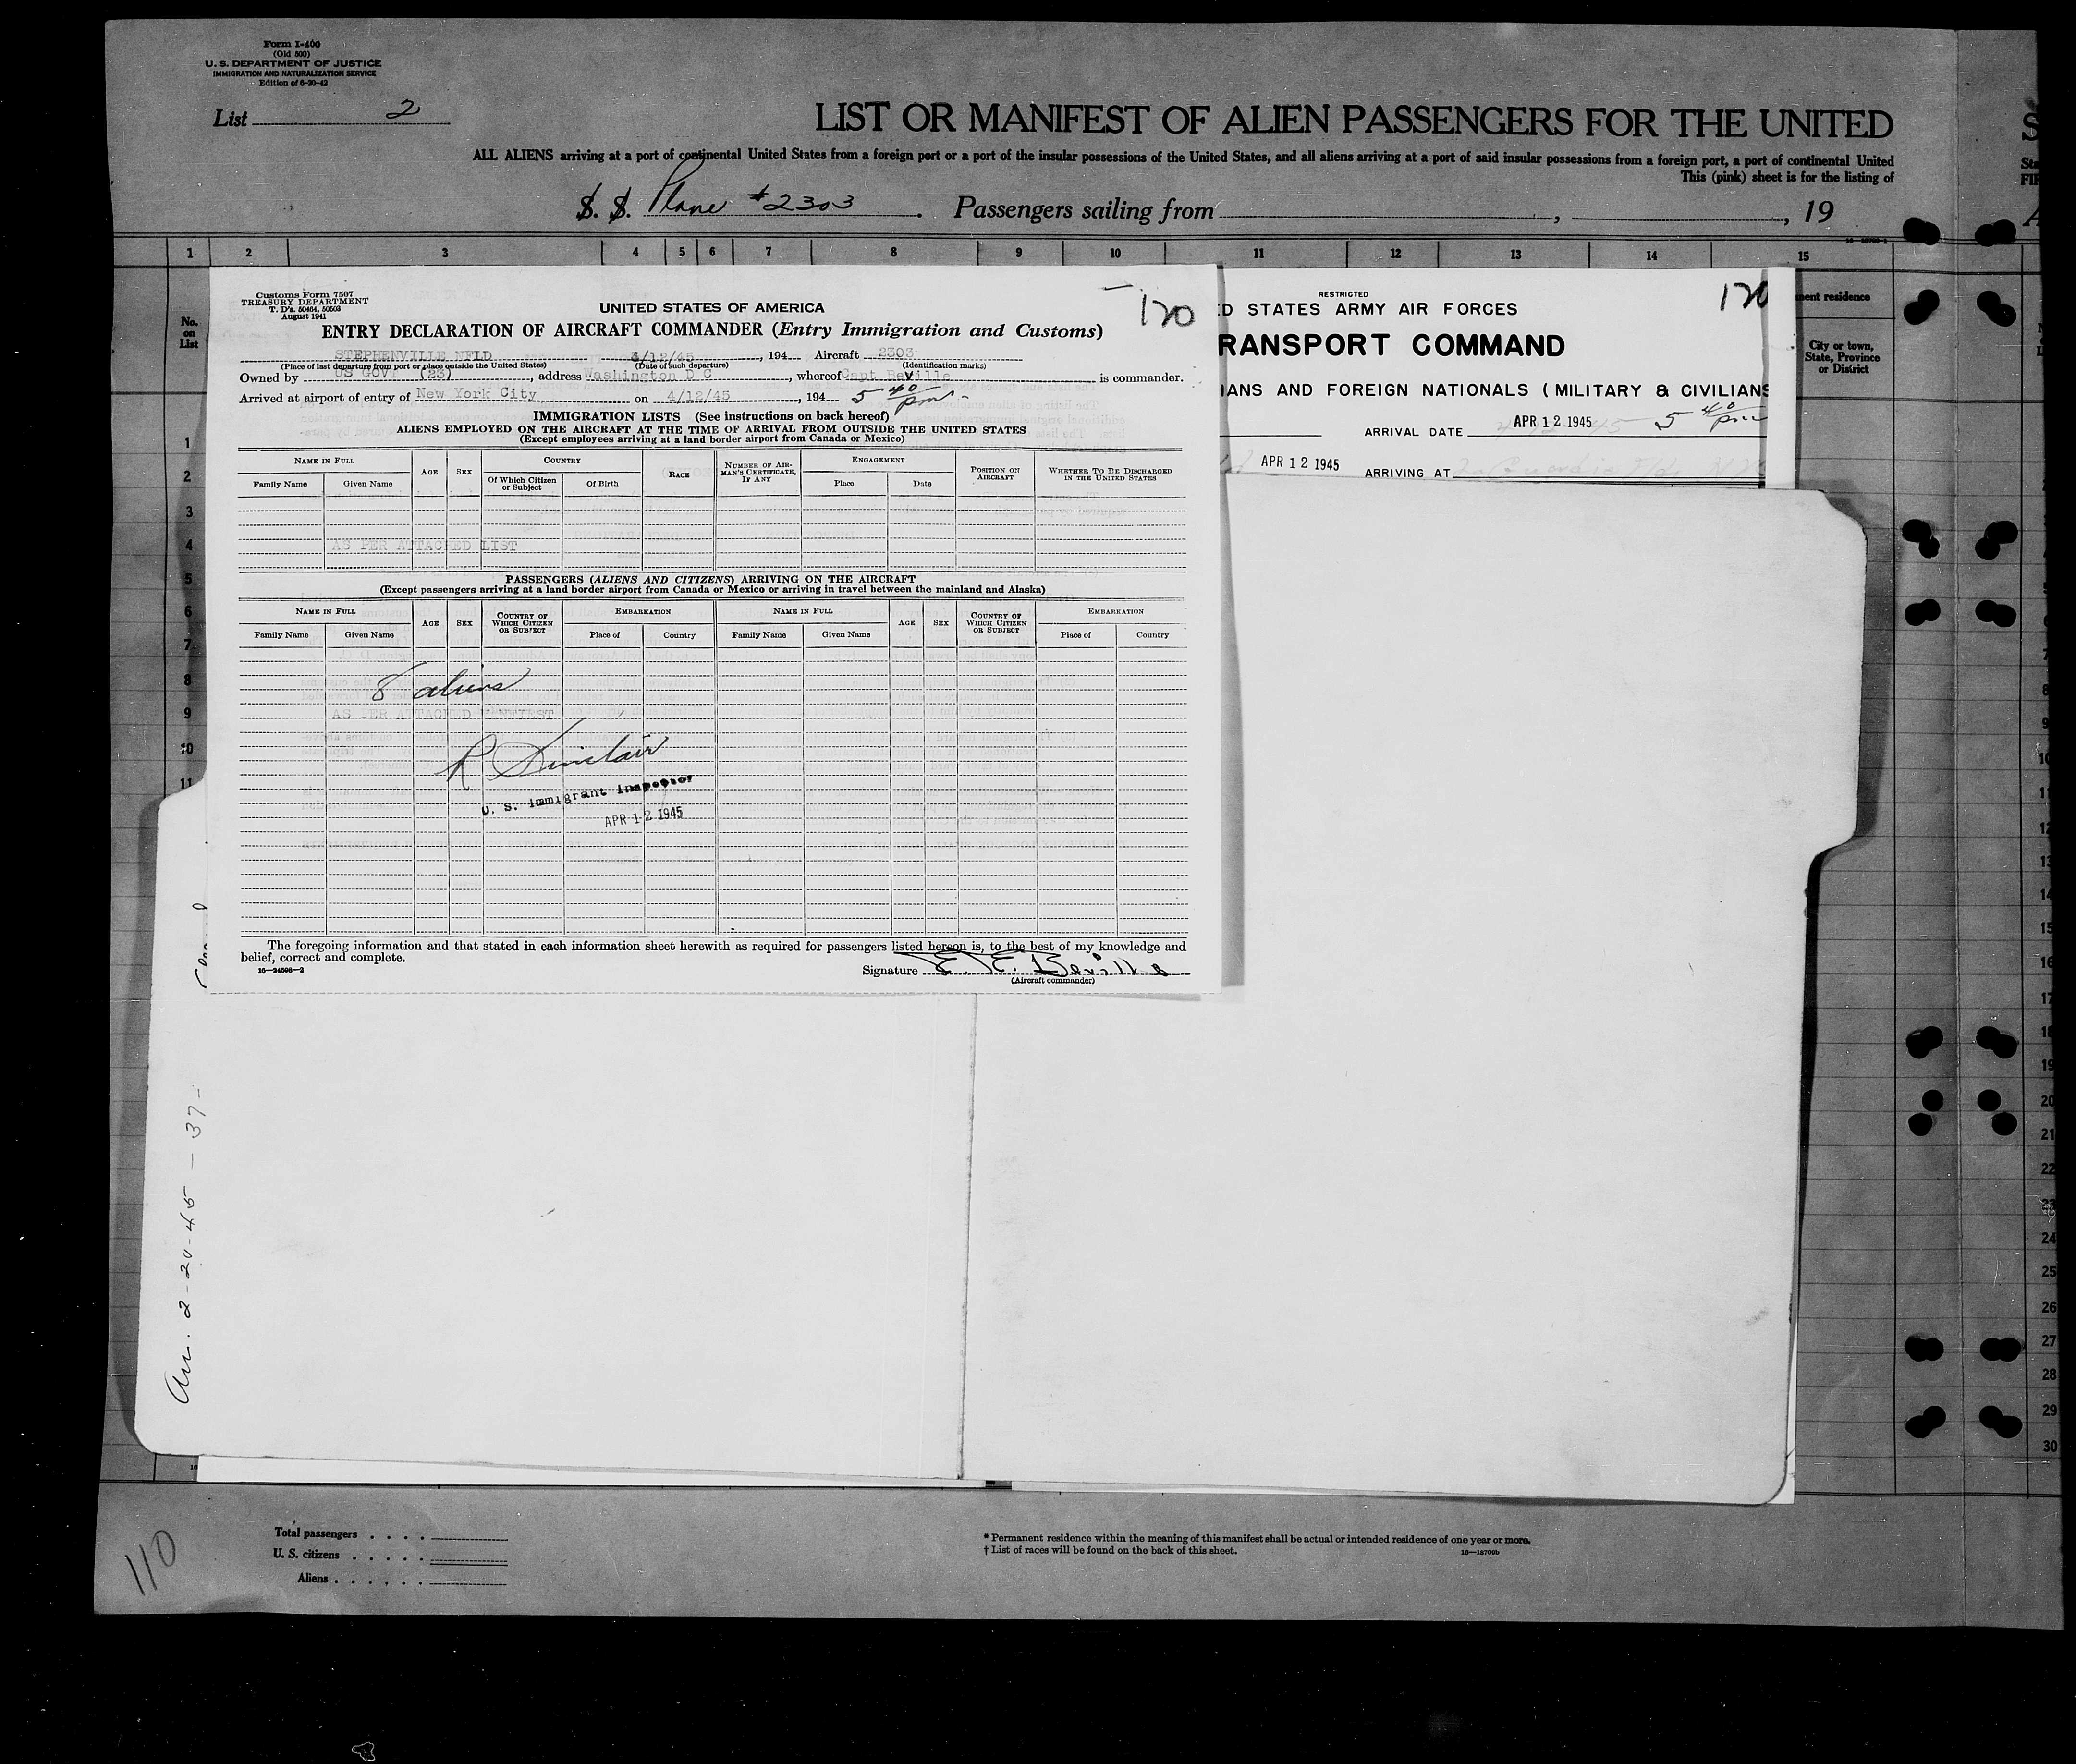 Form I-400
(Old 500)
U. S. DEPARTMENT OF JUSTICE
IMMIGRATION AND NATURALIZATION SERVICE
Edition of 6-20-42
List 2
LIST OR MANIFEST OF ALIEN PASSENGERS FOR THE UNITED
ALL ALIENS arriving at a port of continental United States from a foreign port or a part of the insular possessions of the United States, and all aliens arriving at a port of said insular possessions from a foreign port, a part of continental United
This (pink) sheet is for the listing of
S. S. Plane #2303 . Passengers sailing from , , 19
1 2 3 4 5 6 7 8 9 10 11 12 13 14 15
No. on List
Customs Form 7507
TREASURY DEPARTMENT
T. D's. 50464, 50503
August 1941
UNITED STATES OF AMERICA
120
ENTRY DECLARATION OF AIRCRAFT COMMANDER (Entry Immigration and Customs)
STEPHENVILLE NFLD 4/12/45 , 194 Aircraft 2303
(Place of last departure from port or place outside the United States) (Date of such departure) (Identification marks)
Owned by US GOVT (23) , address Washington D C , whereof Capt Beville is commander.
Arrived at airport of entry of New York City on 4/12/45 , 194 5 40 pm
IMMIGRATION LISTS (See instructions on back hereof)
ALIENS EMPLOYED ON THE AIRCRAFT AT THE TIME OF ARRIVAL FROM OUTSIDE THE UNITED STATES
(Except employees arriving at a land border airport from Canada or Mexico)
NAME IN FULL AGE SEX COUNTRY RACE NUMBER OF AIRMAN'S CERTIFICATE, IF ANY ENGAGEMENT POSITION ON AIRCRAFT WHETHER TO BE DISCHARGED IN THE UNITED STATES
Family Name Given Name Of Which Citizen or Subject Of Birth Place Date
AS PER ATTACHED LIST
PASSENGERS (ALIENS AND CITIZENS) ARRIVING ON THE AIRCRAFT
(Except passengers arriving at a land border airport from Canada or Mexico or arriving in travel between the mainland and Alaska)
NAME IN FULL AGE SEX COUNTRY OF WHICH CITIZEN OR SUBJECT EMBARKATION NAME IN FULL AGE SEX COUNTRY OF WHICH CITIZEN OR SUBJECT EMBARKATION
Family Name Given Name Place of Country Family Name Given Name Place of Country
8 aliens
AS PER ATTACHED MANIFEST
R Sinclair
U. S. Immigrant Inspector
APR 12 1945
The foregoing information and that stated in each information sheet herewith as required for passengers listed hereon is, to the best of my knowledge and
belief, correct and complete.
16—24598-2
Signature E. E. Beville
(Aircraft commander)
RESTRICTED
120
D STATES ARMY AIR FORCES
RANSPORT COMMAND
IANS AND FOREIGN NATIONALS (MILITARY & CIVILIANS
ARRIVAL DATE APR 12 1945 5 40 pm
APR 12 1945 ARRIVING AT
nent residence
City or town, State, Province or District
1
2
3
4
5
6
7
8
9
10
11
12
13
14
15
16
17
18
19
20
21
22
23
24
25
26
27
28
29
30
Arr. 2-20-45-37-
110
Total passengers . . . .
U. S. citizens . . . . .
Aliens . . . . . .
* Permanent residence within the meaning of this manifest shall be actual or intended residence of one year or more.
† List of races will be found on the back of this sheet.
16—18709b